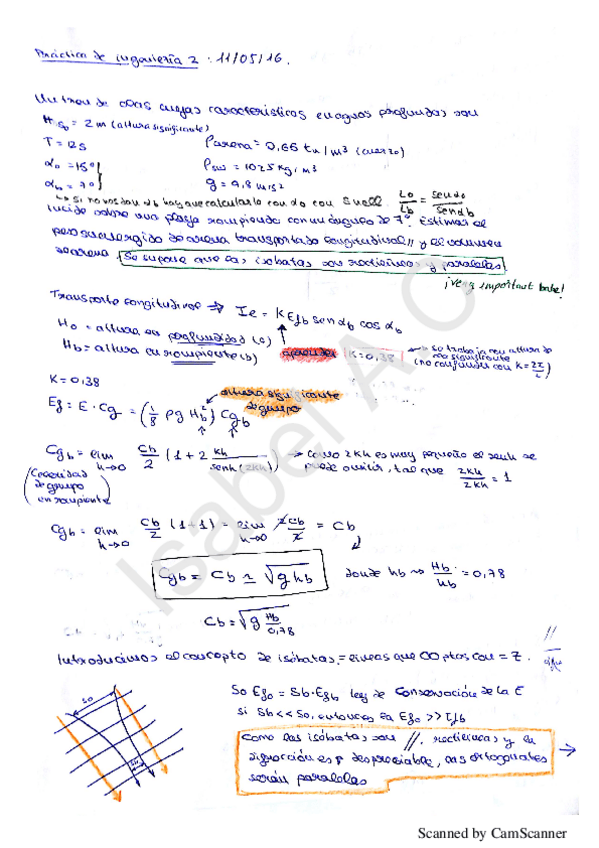 Práctica de ingeniería 2 : 11/05/16.
Un tren de olas cuyas características en aguas profundas son
Hs0 = 2m (altura significante)
T = 12s
ρarena = 0,66 tn/m³
α0 = 15º
ρsw = 1025 kg/m³
αb = 7º
g = 9,8 m/s²
si no nos dan αb hay que calcularlo con α0 con Snell. L0/Lb = senα0/senαb
incide sobre una playa rompiendo con un ángulo de 7º. Estimar el
peso sumergido de arena transportado longitudinal // y el volumen
de arena. Se supone que las isóbatas son rectilíneas y paralelas
¡very important
Transporte longitudinal ⇒ Ie = K Efb sen αb cos αb
H0 = altura en profundidad (0)
Hb = altura en rompiente (b)
K = 0,38
se trabaja con altura de
ola significante
(no confundir con K = 2π/L)
K = 0,38
altura significante
de grupo
Ef = E · Cg = (1/8 ρg Hb²) Cgb
Cgb = lim h→0 Cb/2 (1 + 2 kh/senh(2kh)) → como 2kh es muy pequeño el senh se
puede omitir, tal que 2kh/2kh = 1
(Celeridad
de grupo
en rompiente)
Cgb = lim h→0 Cb/2 (1+1) = lim h→0 2Cb/2 = Cb
Cgb = Cb ≃ √g hb donde hb ⇒ Hb/hb = 0,78
Cb = √g Hb/0,78
Introducimos el concepto de isóbatas = líneas que ptos con = z.
S0
Sb
S0 Ef0 = Sb · Efb ley de Conservación de la E
si Sb << S0, entonces Ef0 >> Efb
Como las isóbatas son //, rectilíneas y la
es despreciable, las ortogonales
serán paralelas
Isabel A.C
Scanned by CamScanner